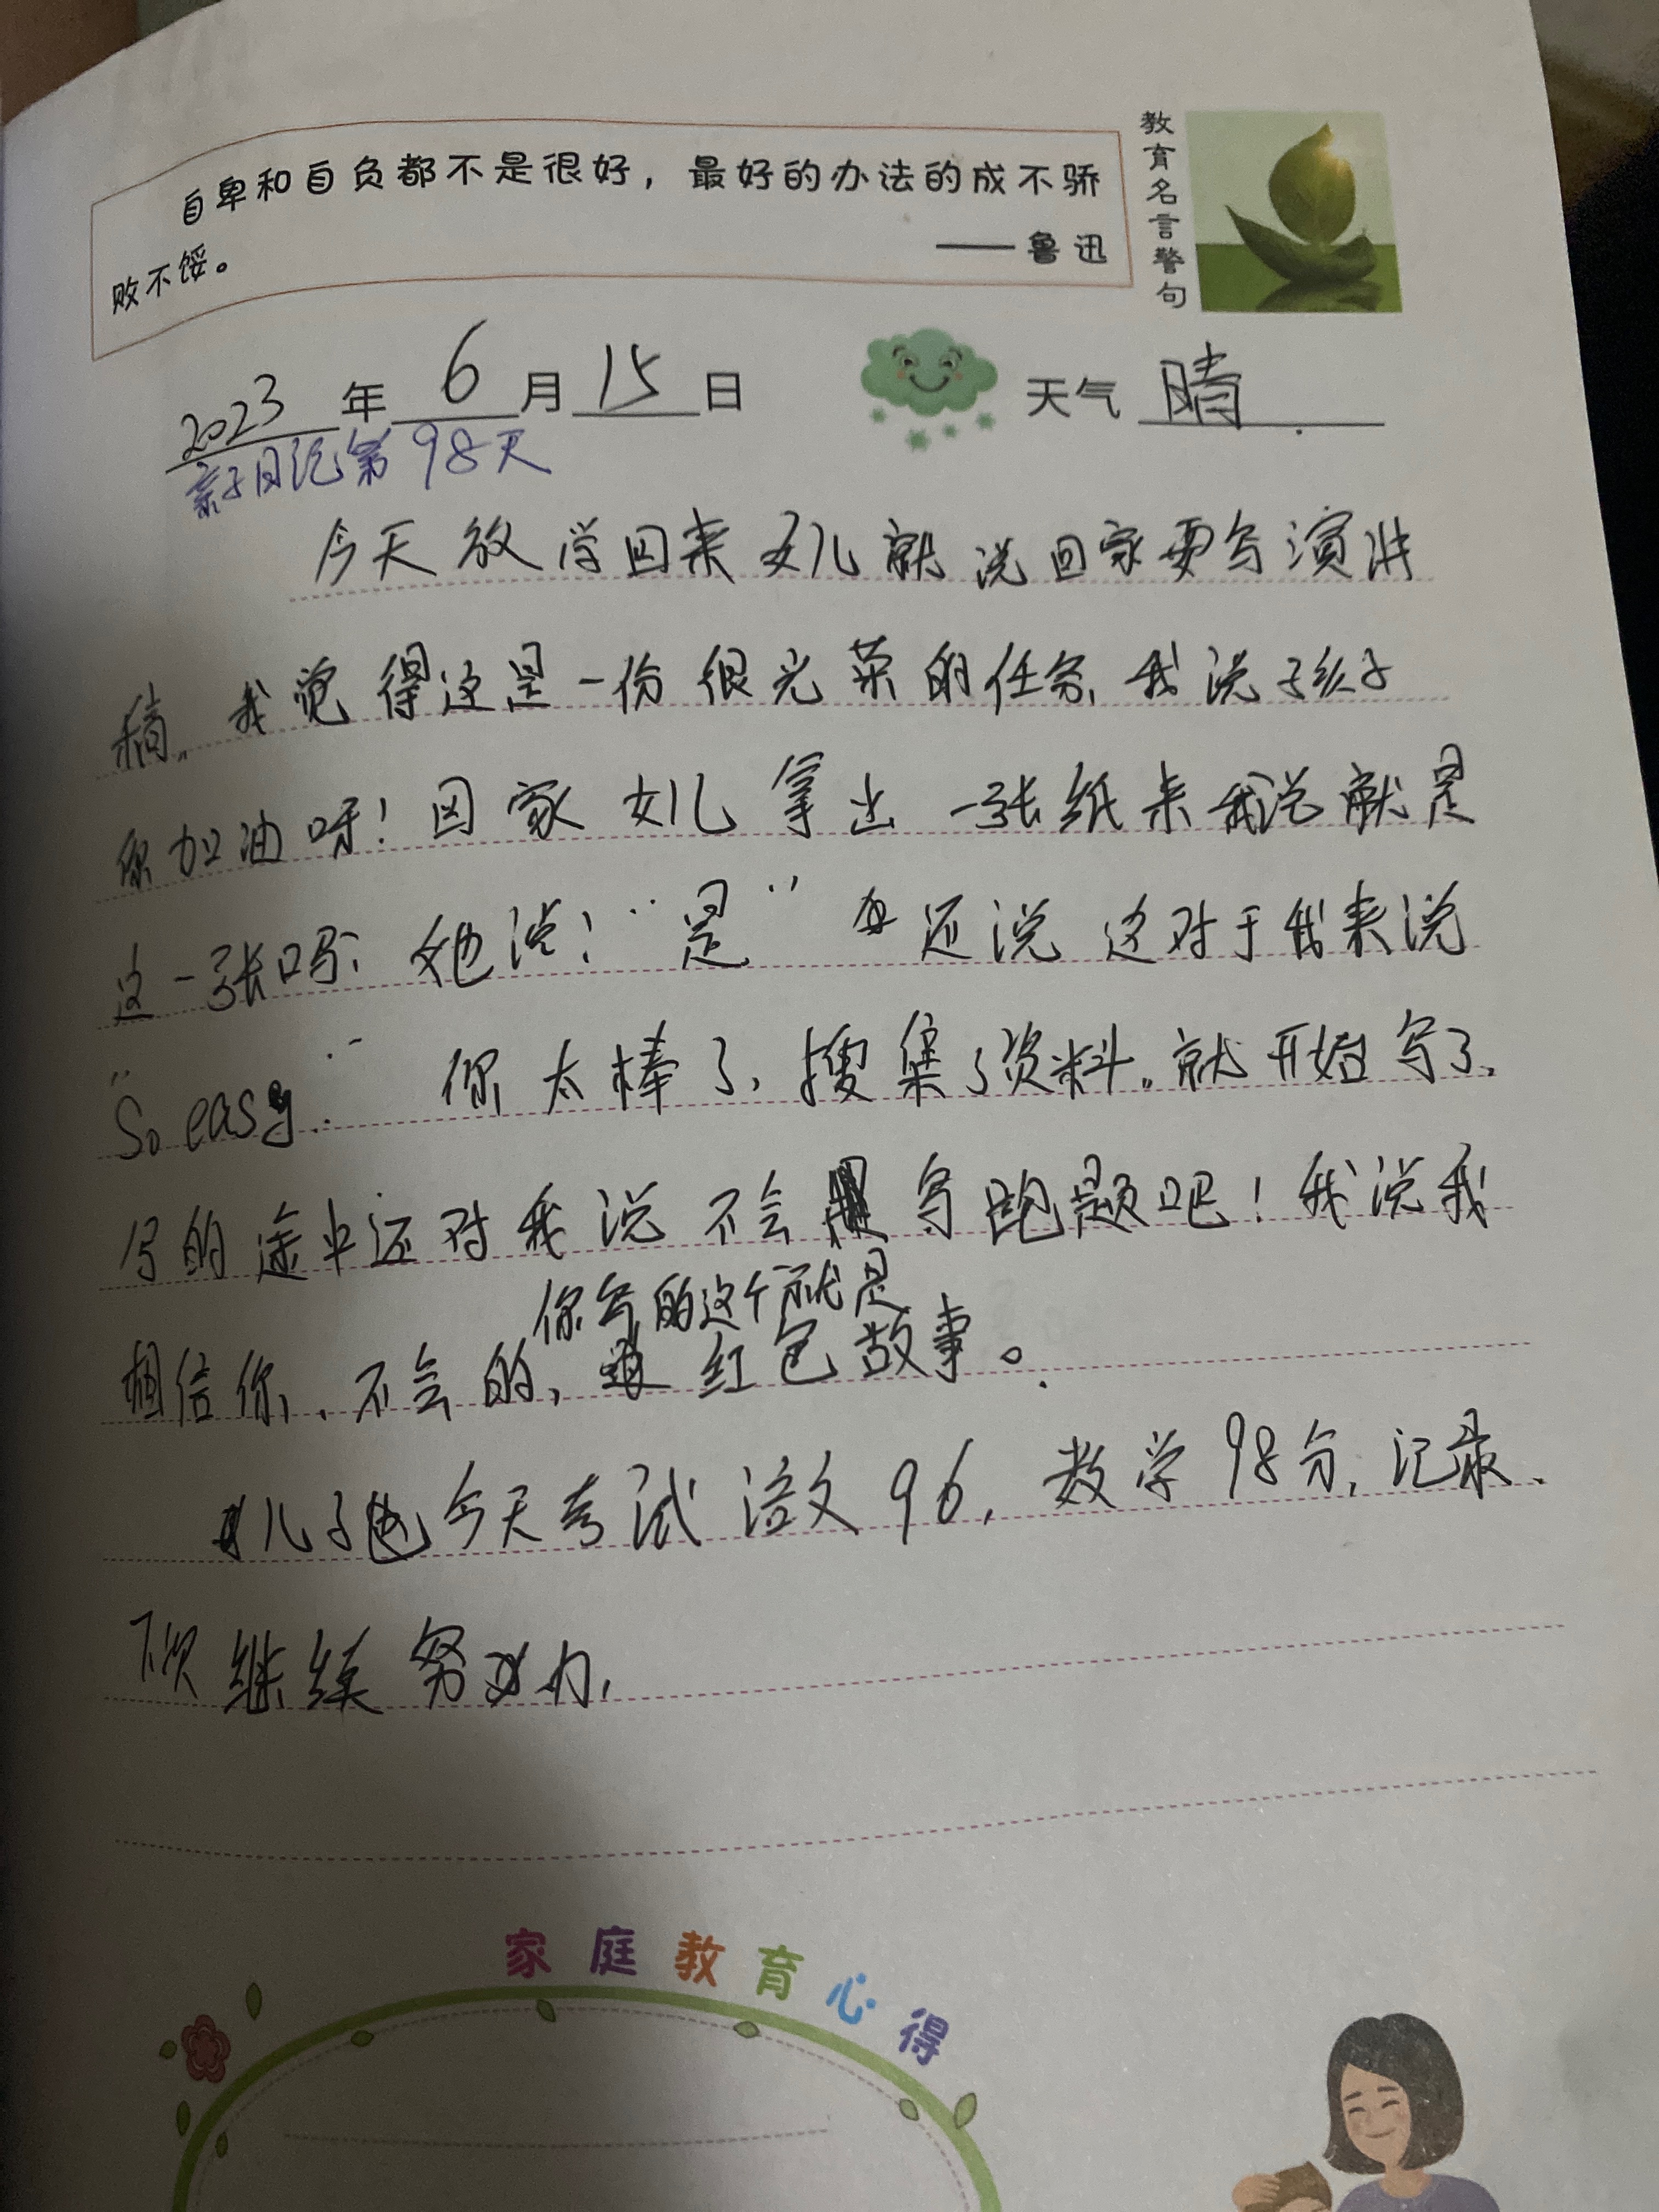 自卑和自负都不是很好，最好的办法的成不骄
败不馁。
——鲁迅
教育名言警句
2023年6月15日 天气 晴
亲子日记第98天
今天放学回来女儿就说回家要写演讲
稿。我觉得这是一份很光荣的任务，我说孩子
你加油呀！回家女儿拿出一张纸来我说就是
这一张吗？她说：“是”还说这对于我来说
“So easy.” 你太棒了，搜集了资料。就开始写了，
写的途中还对我说不会写跑题吧！我说我
你写的这个就是
相信你，不会的，红包故事。
儿子今天考试语文96，数学98分，记录、
下次继续努力，
家庭教育心得